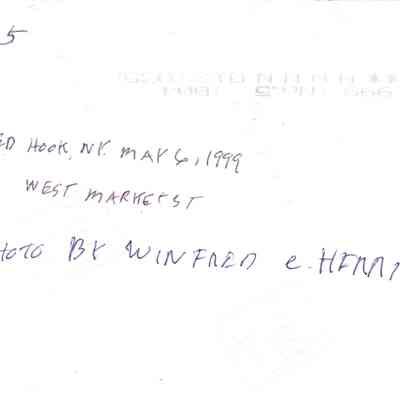 5
ED HOOK, NY. MAY 6, 1999
WEST MARKET ST
HOTO BY WINFRED C. HERRI